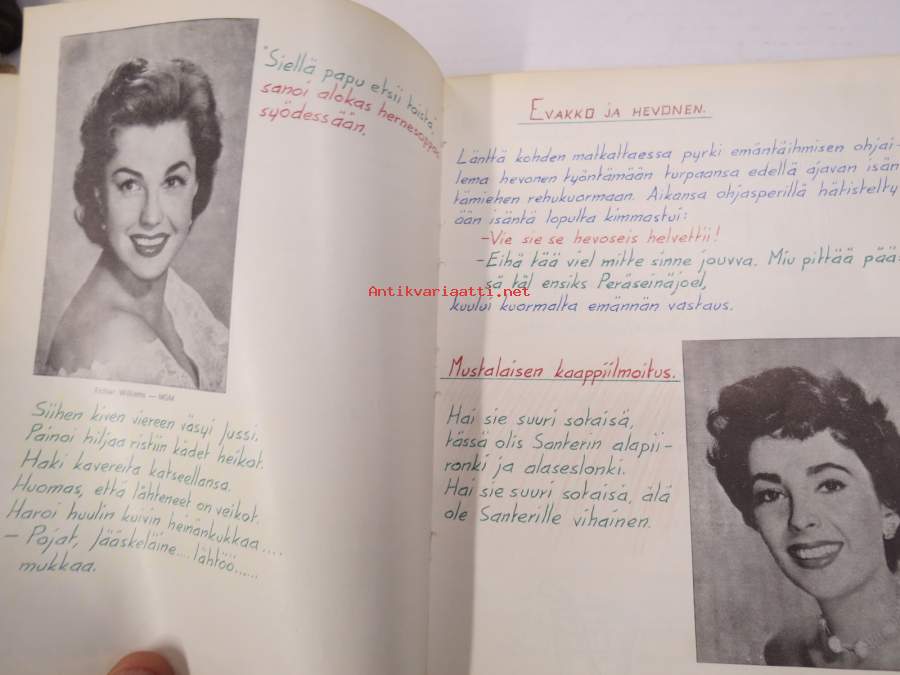 "Siellä papu etsii toista",
sanoi alokas hernesoppaa
syödessään.
Esther Williams — MGM
Siihen kiven viereen väsyi Jussi.
Painoi hiljaa ristiin kädet heikot.
Haki kavereita katseellansa.
Huomas, että lähteneet on veikot.
Haroi huulin kuivin heinänkukkaa....
– Pojat, Jääskeläine.... lähtöö......
mukkaa.
EVAKKO JA HEVONEN.
Länttä kohden matkattaessa pyrki emäntäihmisen ohjai-
lema hevonen työntämään turpaansa edellä ajavan isän-
tämiehen rehukuormaan. Aikansa ohjasperillä hätistelty-
ään isäntä lopulta kimmastui:
-Vie sie se hevoseis helvettii!
-Eihä tää viel mitte sinne jouvva. Miu pittää pää-
sä täl ensiks Peräseinäjoel,
kuului kuormalta emännän vastaus.
Antikvariaatti.net
Mustalaisen kaappiilmoitus.
Hai sie suuri sotaisä,
tässä olis Santerin alapii-
ronki ja alaseslonki.
Hai sie suuri sotaisä, älä
ole Santerille vihainen.